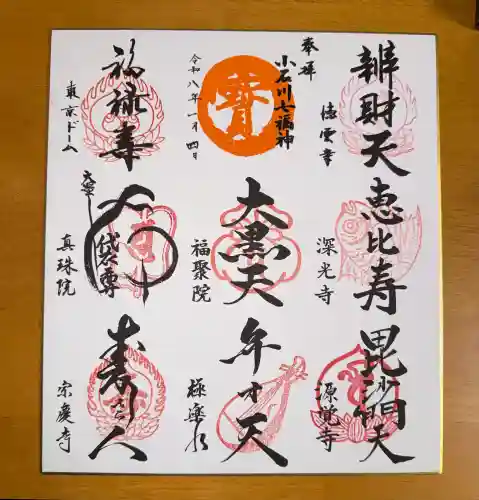 奉拝
小石川七福神
寳
令和八年一月四日
辨財天
徳雲寺
福禄寿
東京ドーム
恵比寿
深光寺
大黒天
福聚院
布袋尊
真珠院
毘沙門天
源覚寺
弁才天
極楽水
寿老人
宗慶寺